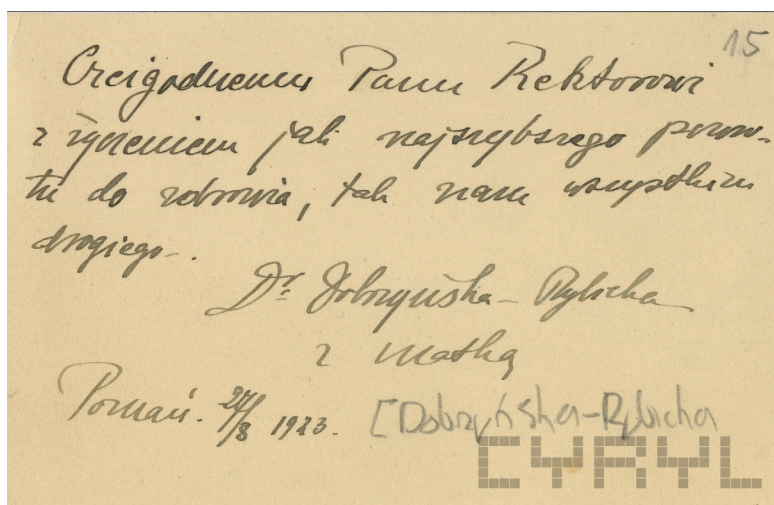 15
Czcigodnemu Panu Rektorowi
z życzeniem jak najszybszego powro-
tu do zdrowia, tak nam wszystkim
drogiego-.
Dr. Dobrzyńska-Rybicka
z matką
Poznań. 24/8 1923.
[Dobrzyńska-Rybicka
CYRYL